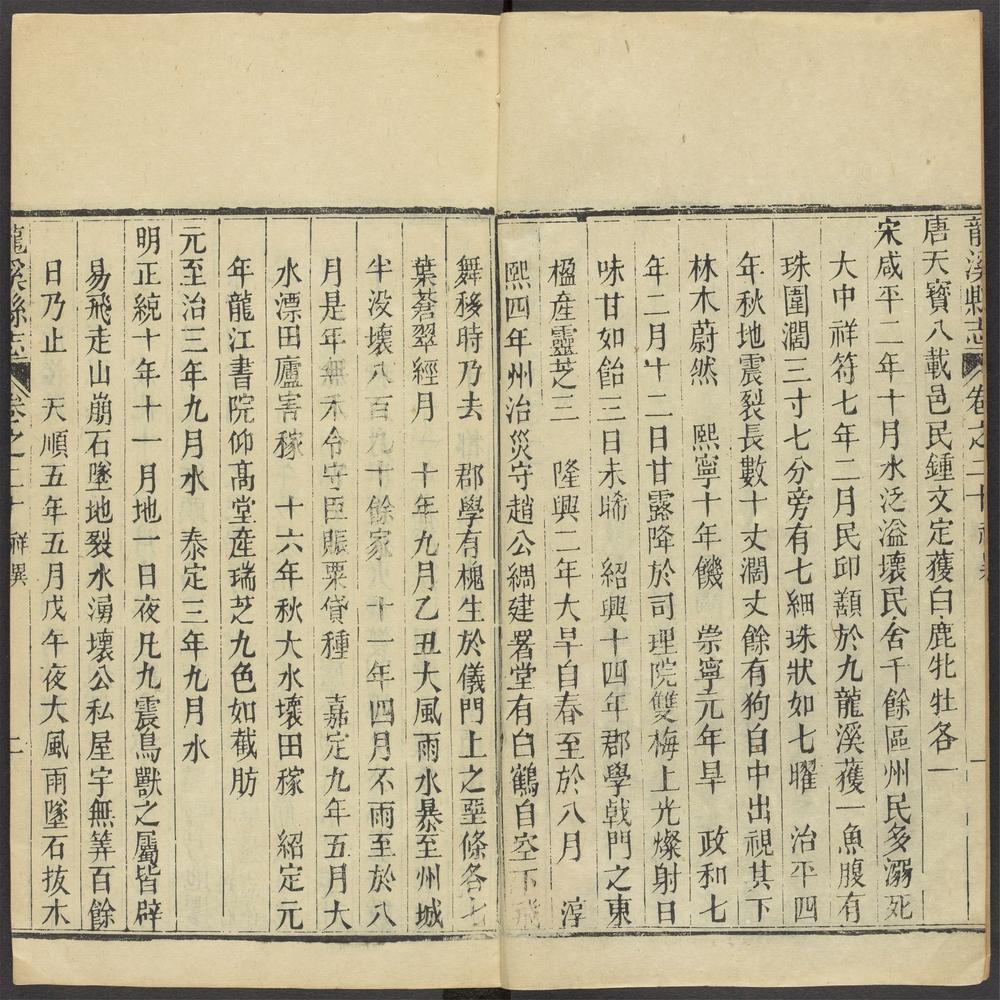 龍溪縣志 卷之二十 祥異 一
唐天寶八載邑民鍾文定獲白鹿牝牡各一
宋咸平二年十月水泛溢壞民舍千餘區州民多溺死
大中祥符七年二月民邱顥於九龍溪獲一魚腹有
珠圍濶三寸七分旁有七細珠狀如七曜 治平四
年秋地震裂長數十丈濶丈餘有狗自中出視其下
林木蔚然 熙寧十年饑 崇寧元年旱 政和七
年二月十二日甘露降於司理院雙梅上光燦射日
味甘如飴三日未晞 紹興十四年郡學戟門之東
楹産靈芝三 隆興二年大旱自春至於八月 淳
熙四年州治災守趙公綢建署堂有白鶴自空下飛
舞移時乃去 郡學有槐生於儀門上之堊條各七
葉蒼翠經月 十年九月乙丑大風雨水暴至州城
半没壞八百九十餘家 十一年四月不雨至於八
月是年無禾令守臣賑粟貸種 嘉定九年五月大
水漂田廬害稼 十六年秋大水壞田稼 紹定元
年龍江書院仰髙堂産瑞芝九色如截肪
元至治三年九月水 泰定三年九月水
明正統十年十一月地一日夜凡九震鳥獸之屬皆辟
易飛走山崩石墜地裂水湧壞公私屋宇無筭百餘
日乃止 天順五年五月戊午夜大風雨墜石拔木
龍溪縣志 卷之二十 祥異 二